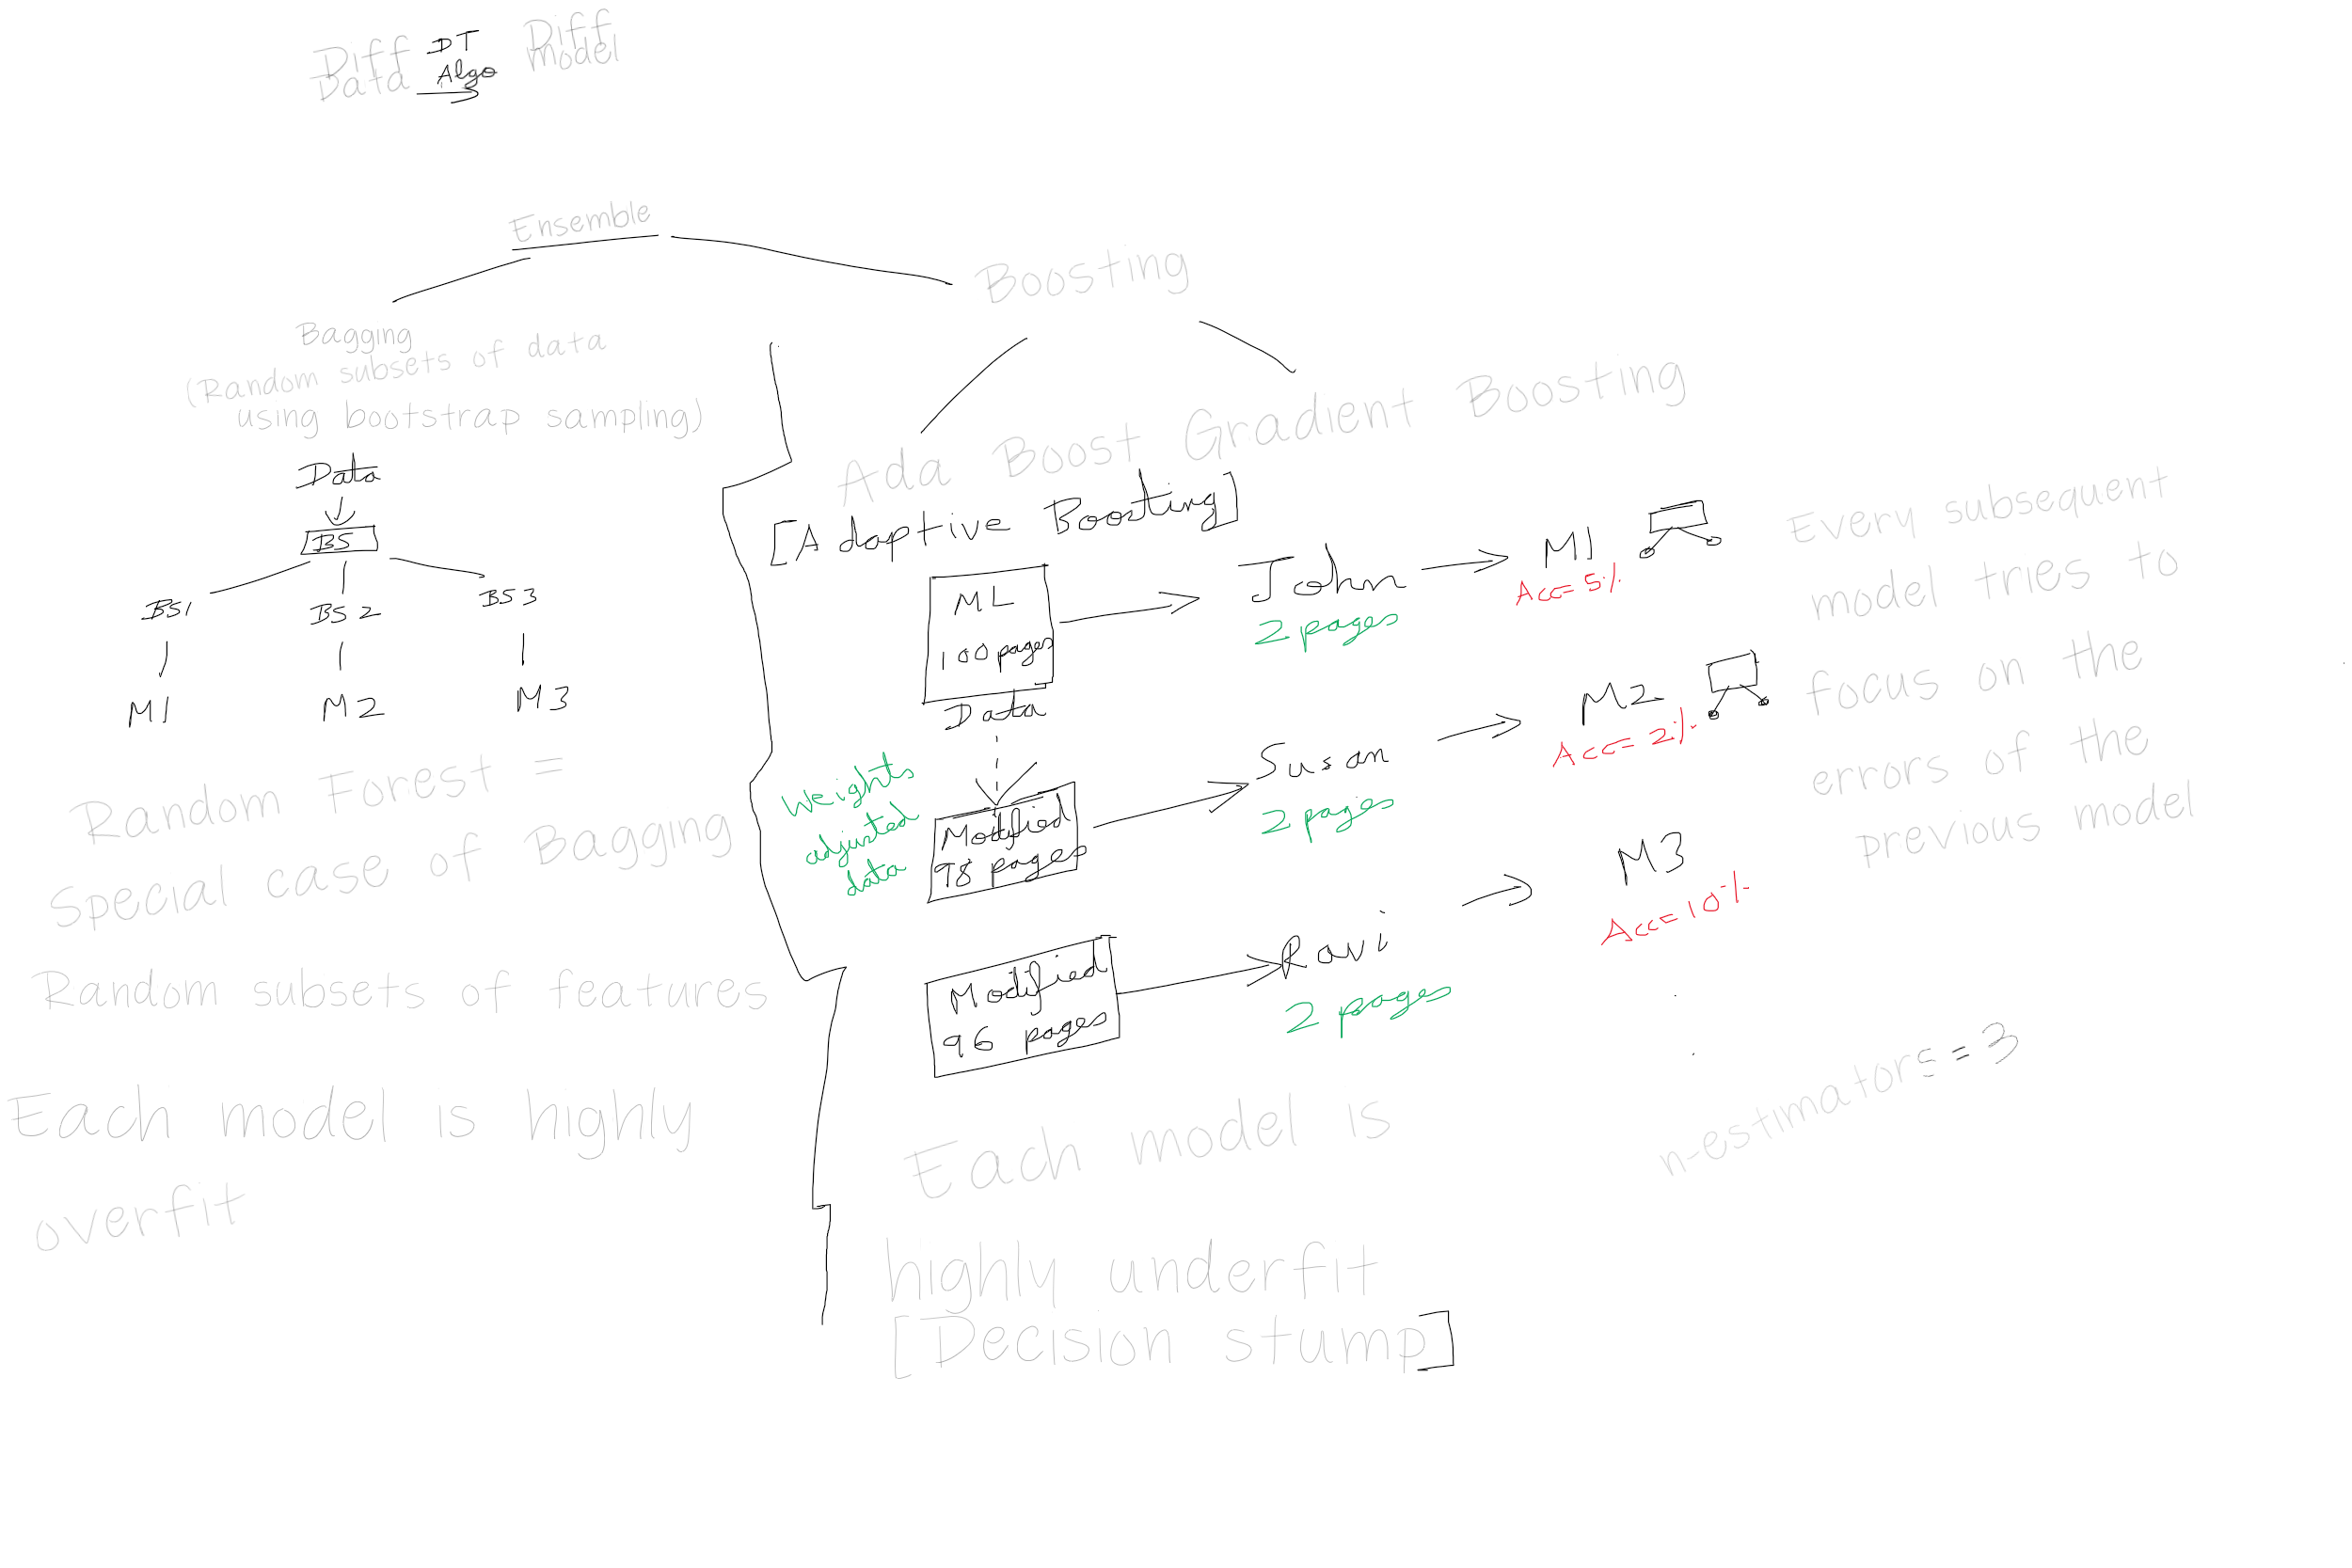 Diff DT Diff
Data Algo Model
Ensemble
Bagging
(Random subsets of data
using bootstrap sampling)
Data
BS
BS1 BS2 BS3
M1 M2 M3
Random Forest =
Special case of Bagging
Random subsets of features
Each model is highly
overfit
Boosting
Ada Boost Gradient Boosting
[Adaptive Boosting]
ML
100 pages
Data
John
2 pages
M1
Acc=5%
Weights
adjusted
data
Modified
98 pages
Susan
2 pages
M2
Acc=2%
Modified
96 pages
Ravi
2 pages
M3
Acc=10%
Every subsequent
model tries to
focus on the
errors of the
previous model
n-estimators=3
Each model is
highly underfit
[Decision stump]